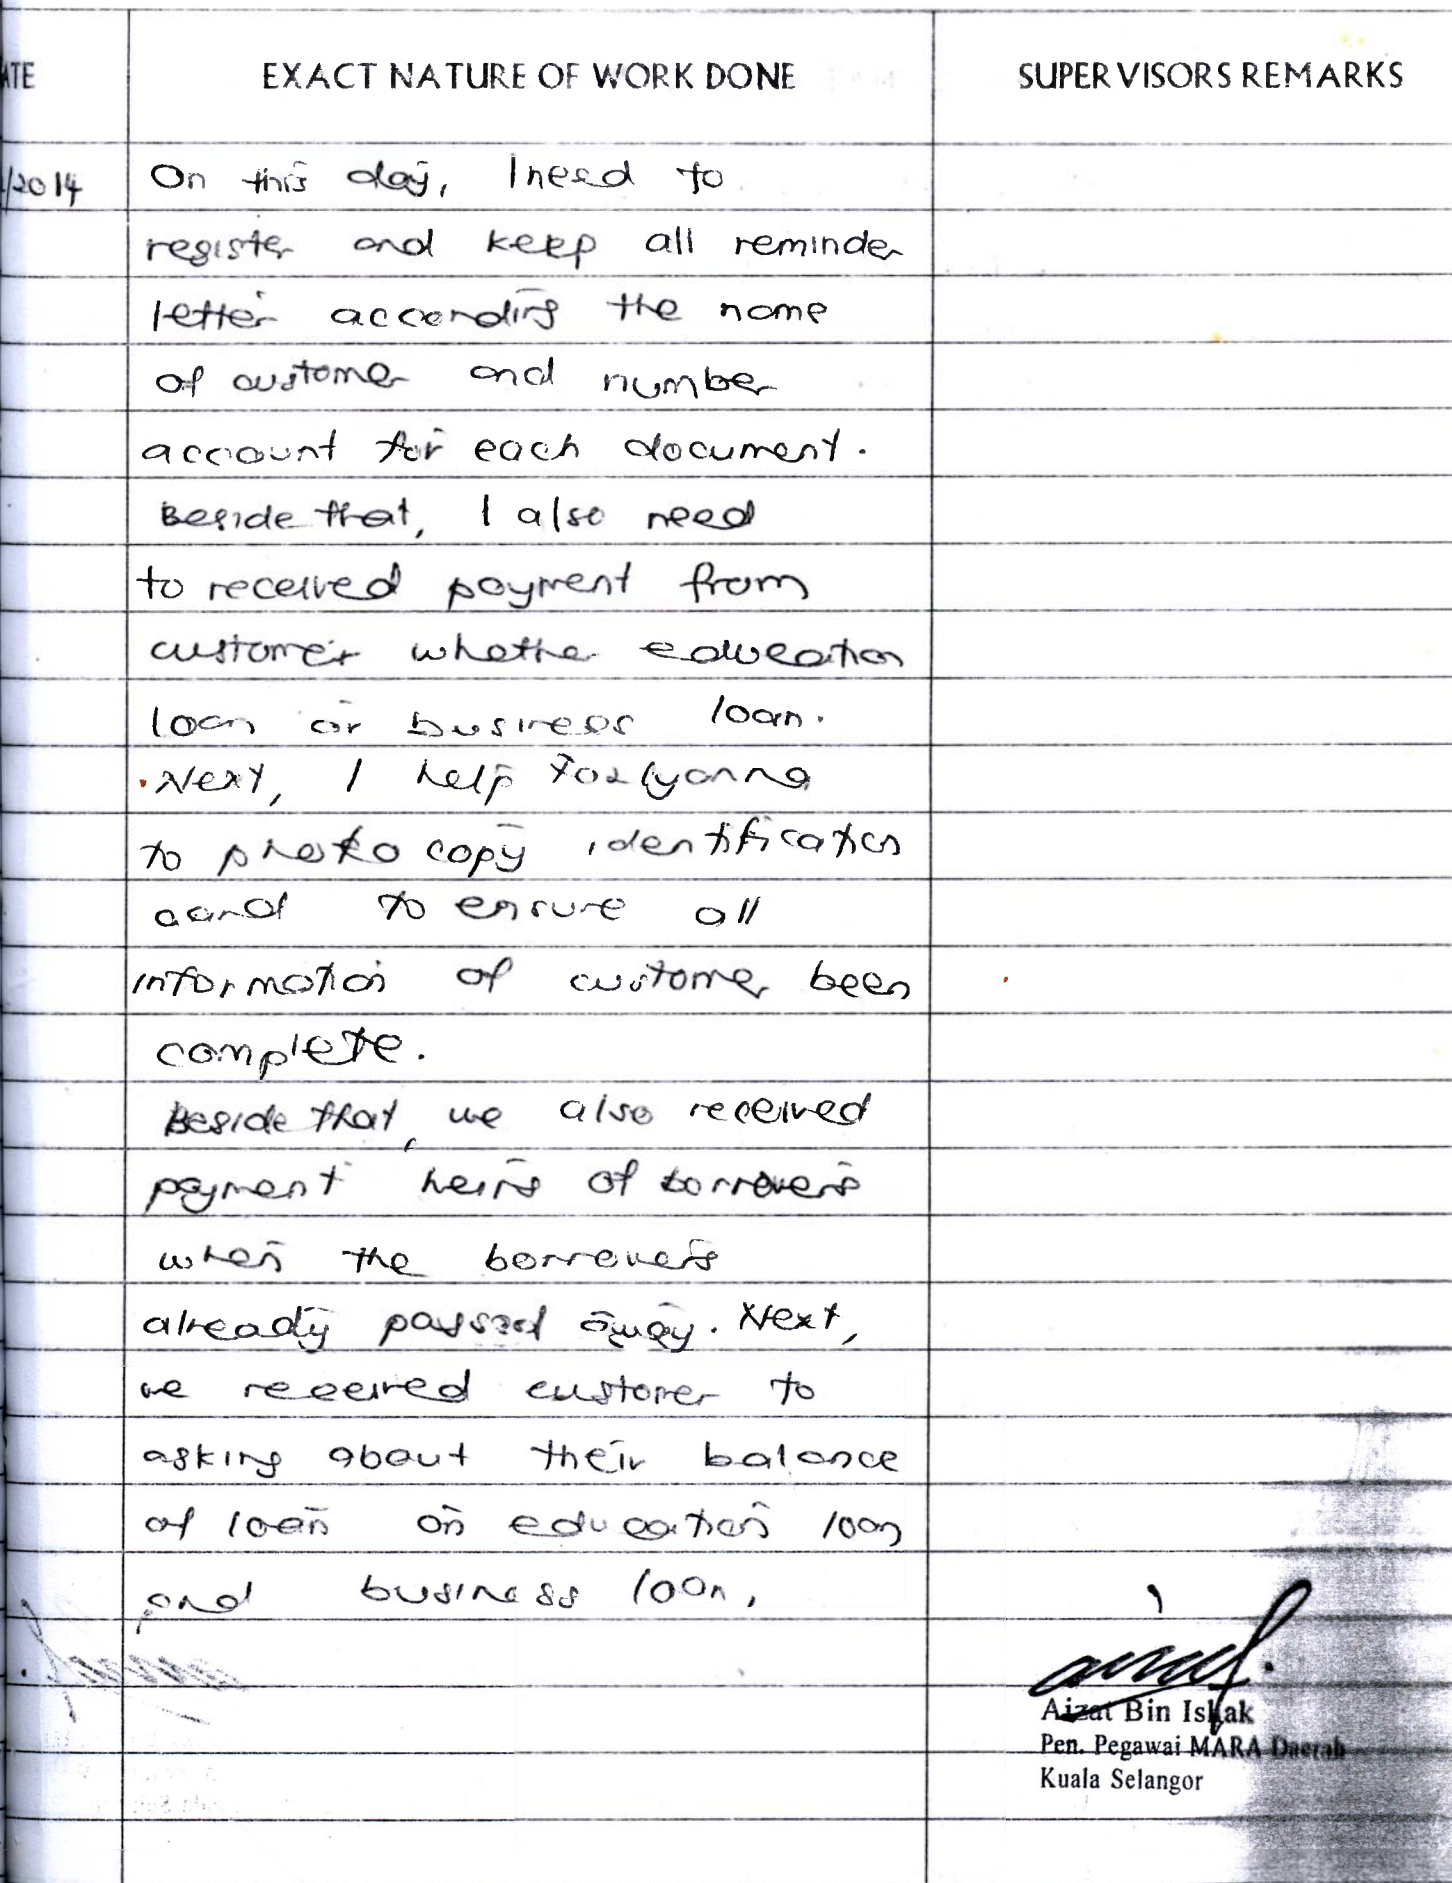 ATE EXACT NATURE OF WORK DONE SUPERVISORS REMARKS
/2014 On this day, I need to
register and keep all reminder
letter according the name
of customer and number
account for each document.
Beside that, I also need
to received payment from
customer whether education
loan or business loan.
Next, I help
to photo copy identification
card to ensure all
information of customer been
complete.
Beside that, we also received
payment heirs of borrowers
when the borrowers
already passed away. Next,
we received customer to
asking about their balance
of loan on education loan
and business loan.
Aizat Bin Ishak
Pen. Pegawai MARA Daerah
Kuala Selangor